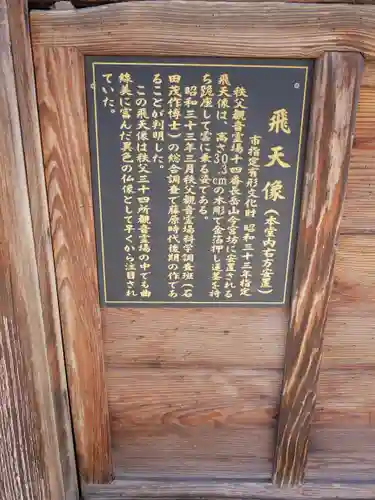 飛天像（本堂内右方安置）
市指定有形文化財 昭和三十三年指定
秩父観音霊場十四番長岳山今宮坊に安置される
飛天像は、高さ30.3cmの木彫で金箔押し蓮茎を持
ち跪座して雲に乗る姿である。
昭和三十三年三月秩父観音霊場科学調査班（石
田茂作博士）の総合調査で藤原時代後期の作であ
ることが判明した。
この飛天像は秩父三十四所観音霊場の中でも曲
線美に富んだ異色の仏像として早くから注目され
ていた。